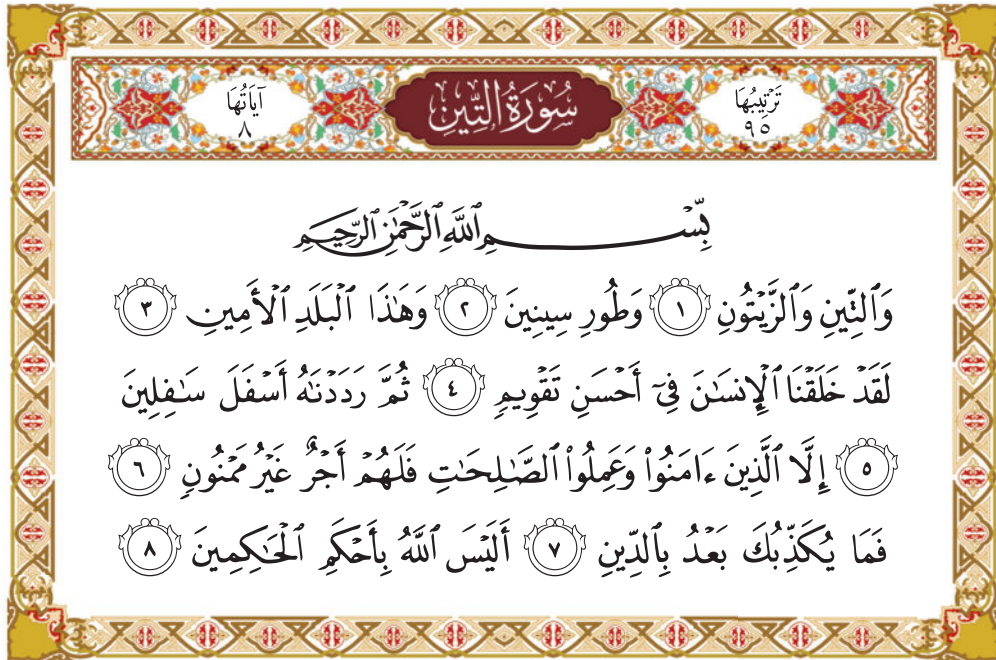 ترتيبها
٩٥
سُورَةُ التِّينِ
آياتُهَا
٨
بِّسْمِ ٱللَّهِ ٱلرَّحْمَٰنِ ٱلرَّحِيمِ
وَٱلتِّينِ وَٱلزَّيْتُونِ ١ وَطُورِ سِينِينَ ٢ وَهَٰذَا ٱلْبَلَدِ ٱلْأَمِينِ ٣
لَقَدْ خَلَقْنَا ٱلْإِنسَٰنَ فِىٓ أَحْسَنِ تَقْوِيمٍ ٤ ثُمَّ رَدَدْنَٰهُ أَسْفَلَ سَٰفِلِينَ
٥ إِلَّا ٱلَّذِينَ ءَامَنُوا۟ وَعَمِلُوا۟ ٱلصَّٰلِحَٰتِ فَلَهُمْ أَجْرٌ غَيْرُ مَمْنُونٍ ٦
فَمَا يُكَذِّبُكَ بَعْدُ بِٱلدِّينِ ٧ أَلَيْسَ ٱللَّهُ بِأَحْكَمِ ٱلْحَٰكِمِينَ ٨